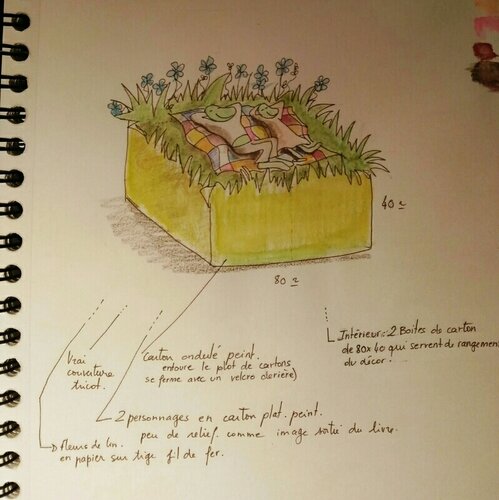 40
80
Vrai
couverture
tricot.
Carton ondulé peint.
entoure le plot de cartons
se ferme avec un velcro derière)
Intérieur: 2 Boites de carton
de 80x40 qui servent de rangement
du décor.
2 personnages en carton plat. peint.
peu de relief. comme image sortie du livre.
fleurs de lin.
en papier sur tige fil de fer.